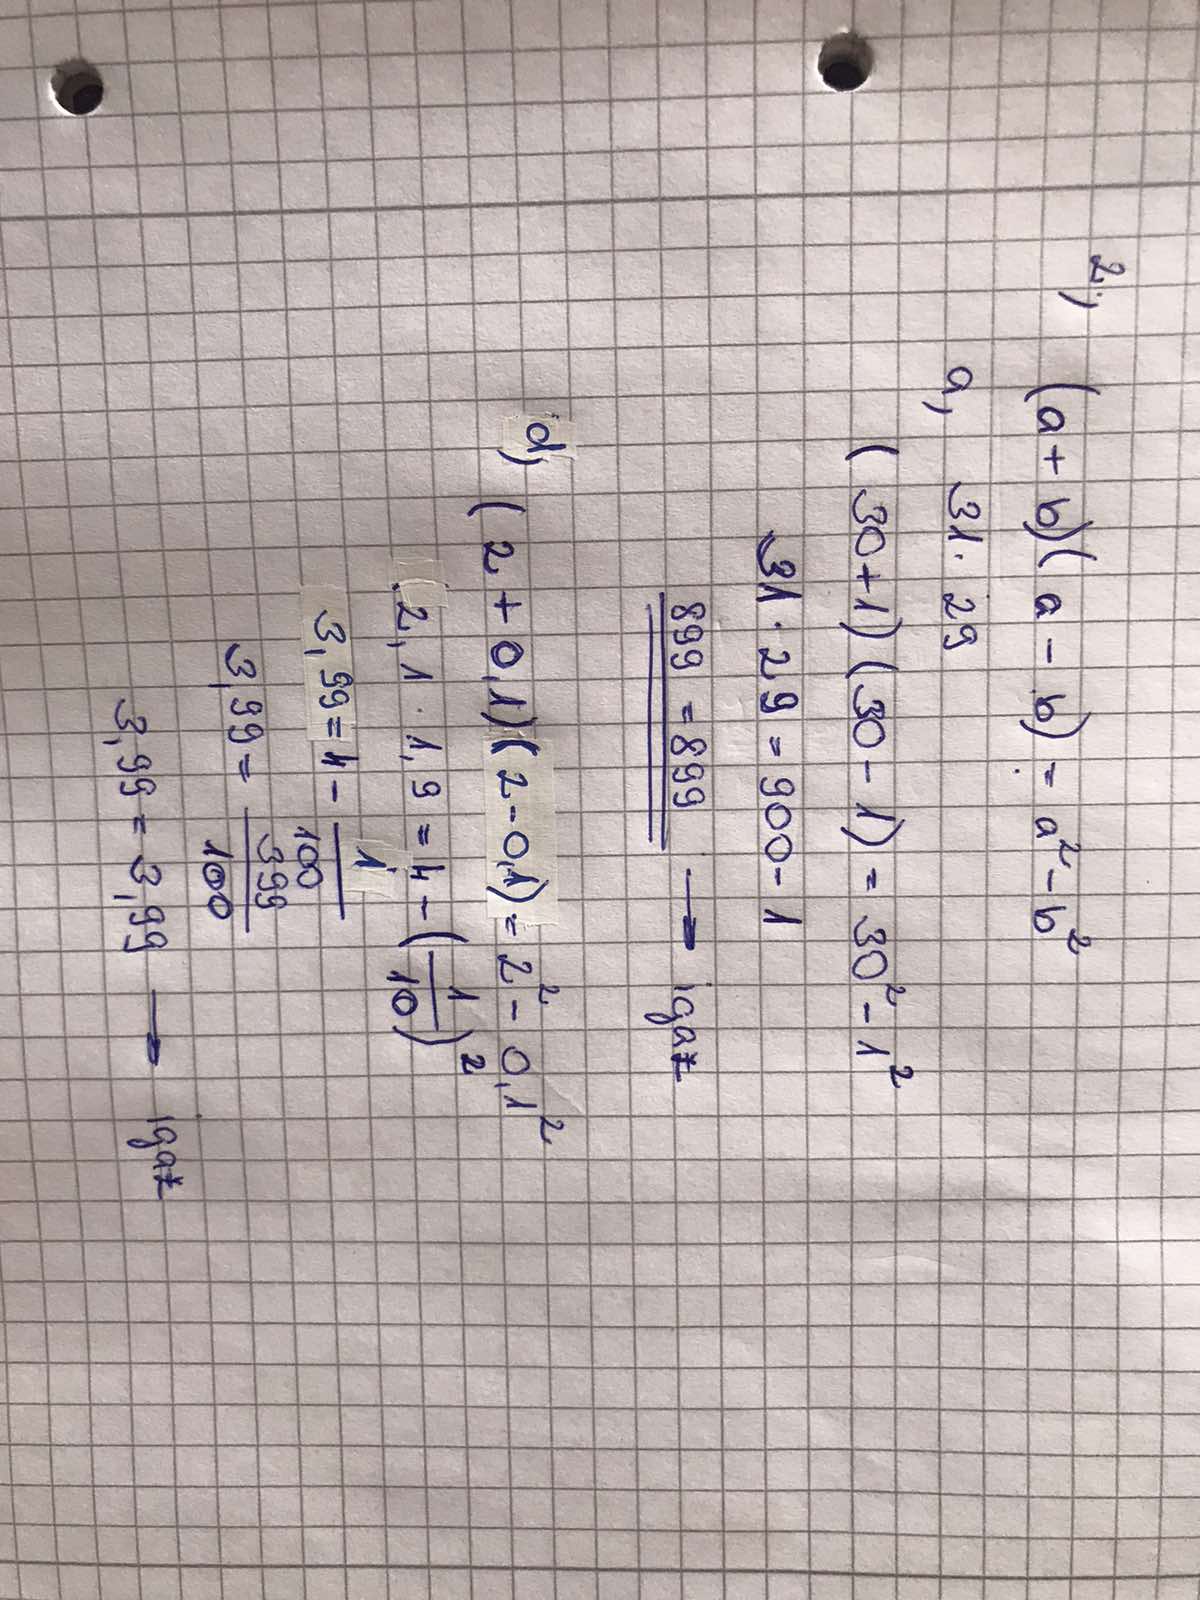 2.,
(a+b)(a-b) = a²-b²
a, 31·29
(30+1)(30-1) = 30²-1²
31·29 = 900-1
899 = 899 → igaz
d, (2+0,1)(2-0,1) = 2²-0,1²
2,1·1,9 = 4-(1/10)²
3,99 = 4-1/100
3,99 = 399/100
3,99 = 3,99 → igaz